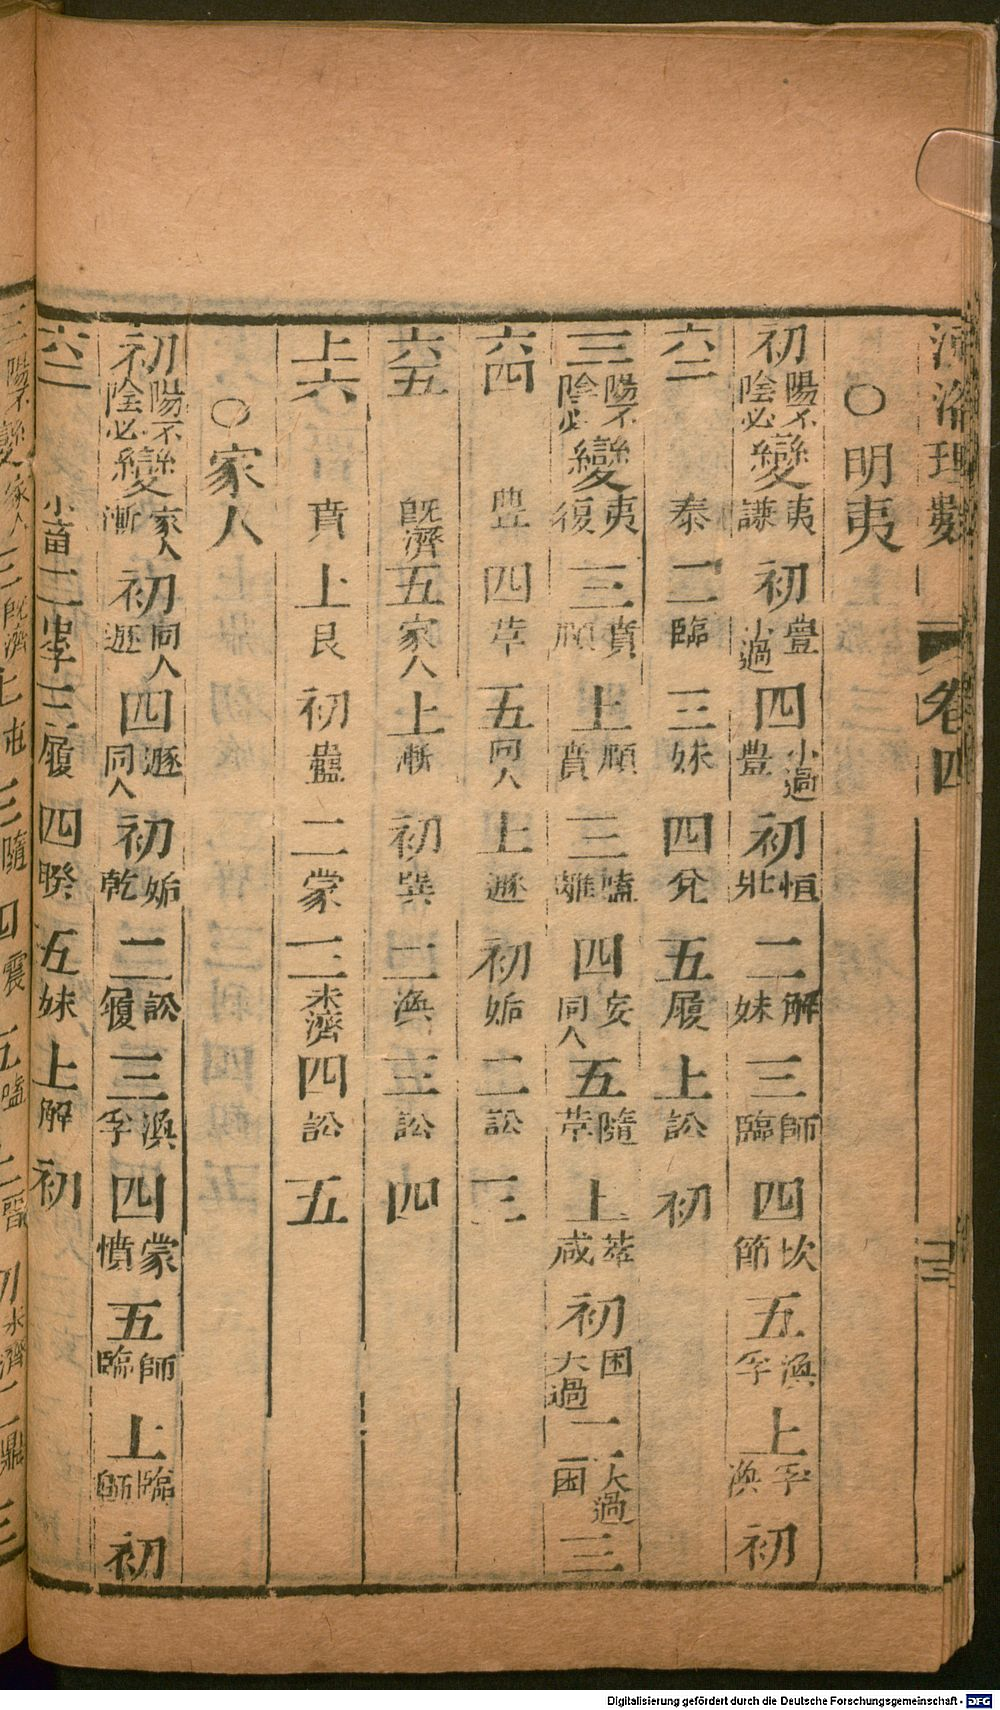 河洛理數 卷四
○明夷
初陽不陰必變夷謙初豊小過四小過豊初恒壯二解妹三師臨四坎節五渙孚上孚渙初
六二泰二臨三妹四兌五履上訟初
三陽不陰必變夷復三賁頤上頤賁三嗑離四妄同人五隨萃上萃咸初困大過二大過困三
六四豊四革五同人上遯初姤二訟三
六五旣濟五家人上漸初巽二渙三訟四
上六賁上艮初蠱二蒙三未濟四訟五
○家人
初陽不陰必變家人漸初同人遯四遯同人初姤乾二訟履三渙孚四蒙憤五師臨上臨師初
六二小畜二中孚三履四睽五妹上解初
三陽不變家人三旣濟上屯三隨四震五嗑上晉初未濟二鼎三
Digitalisierung gefördert durch die Deutsche Forschungsgemeinschaft - DFG